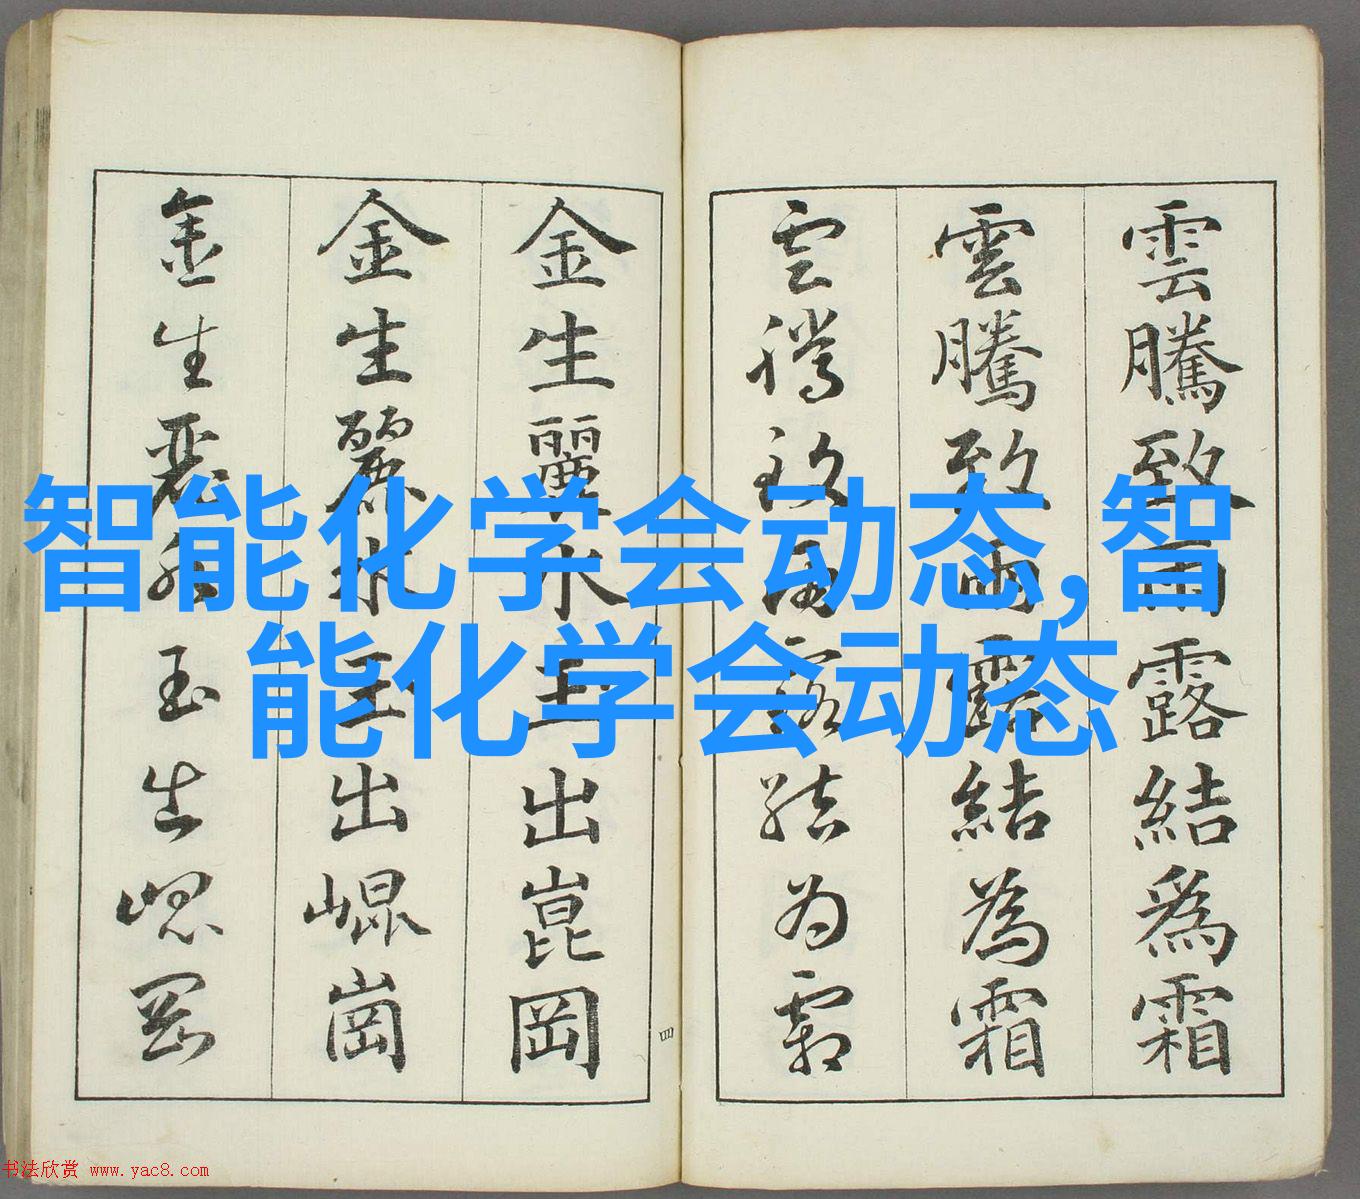 雲騰致雨露結為霜
雲騰致雨露結為霜
雲騰致雨露結為霜
金生麗水玉出崑岡
金生麗水玉出崐崗
金生麗水玉出崐岡
四
智能化学会动态,智
能化学会动态
书法欣赏 www.yac8.com